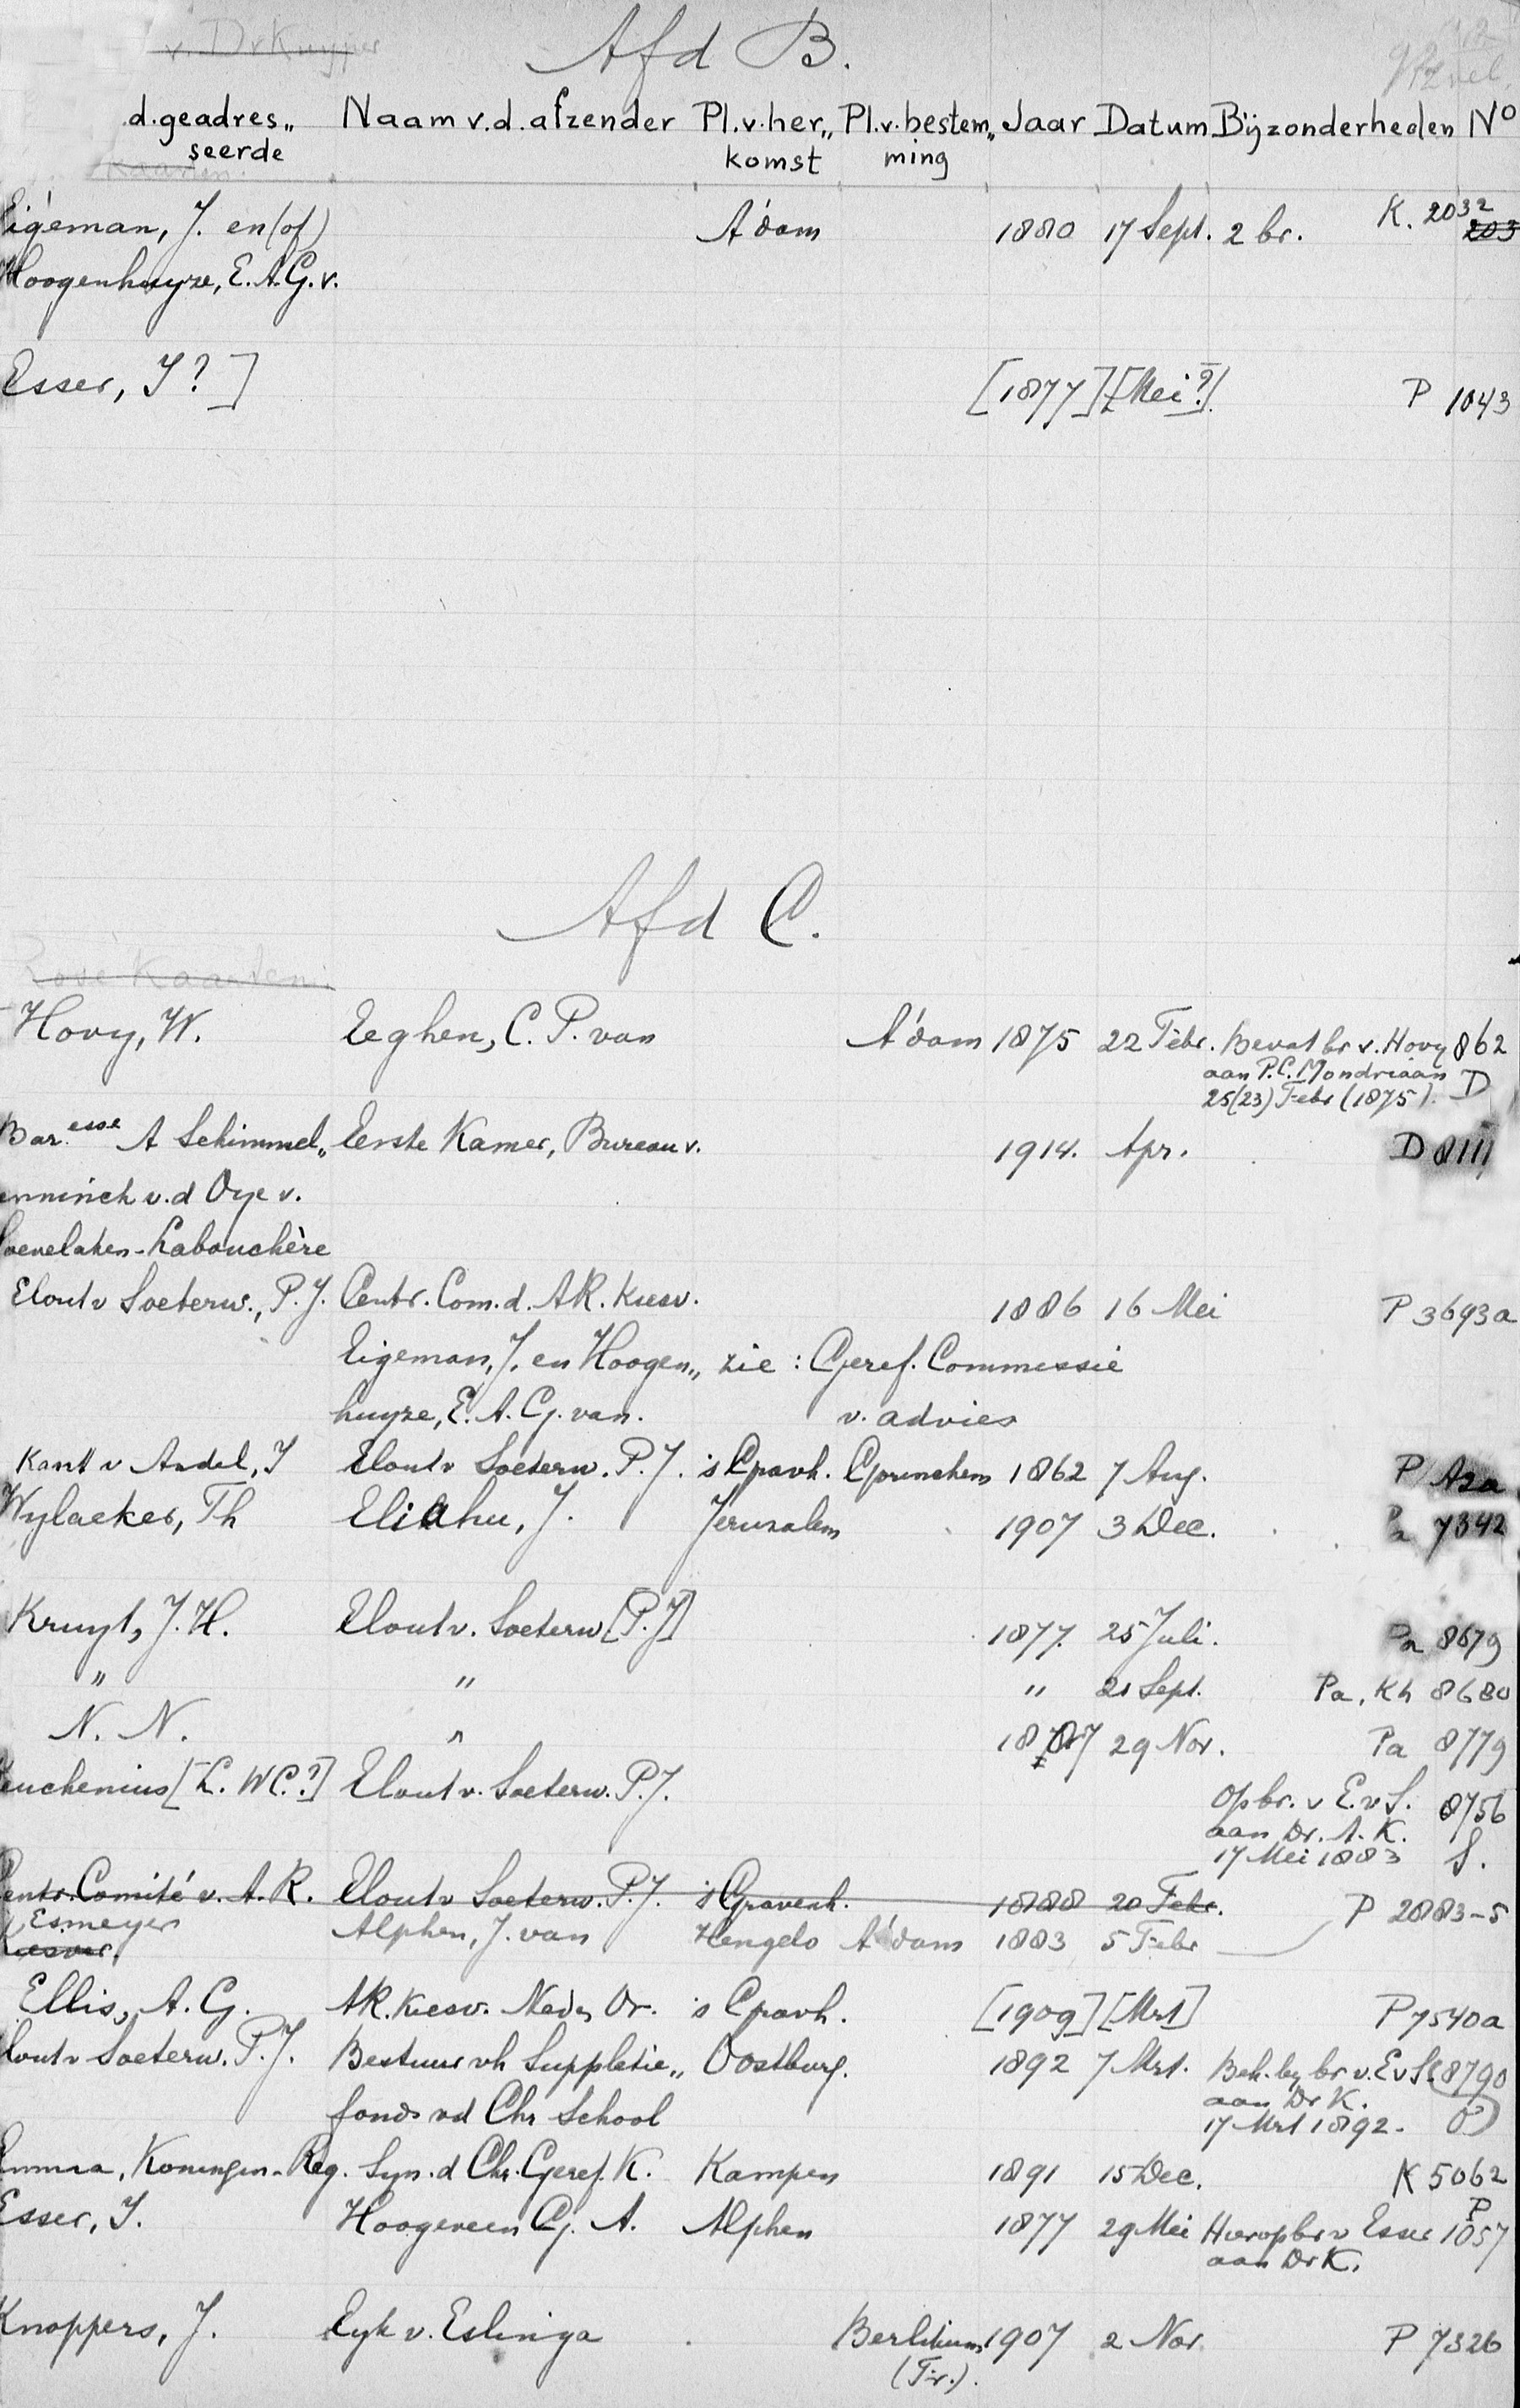 v. Dr Kuyper
Afd B.
d. geadres„ Naam v.d. afzender Pl. v. her„ Pl. v. bestem„ Jaar Datum Bijzonderheden No
seerde komst ming
Kaarten.
Eigeman, J. en (of) A'dam 1880 17 Sept. 2 br. K. 2032 203
Hoogenhuyze, E. A. G. v.
Esser, I?] [1877] [Mei?] P 1043
Afd C.
Rose Kaarten
Hovy, W. Eeghen, C. P. van A'dam 1875 22 Febr. Bevat br v. Hovy 862
aan P.C. Mondriaan D
25(23) Febr (1875).
Bar.esse A Schimmel„ Eerste Kamer, Bureau v. 1914. Apr. D 8111
enninck v.d Oye v.
oevelaken-Labouchère
Elout v Soeterw., P. J. Centr. Com. d. AR. Kiesv. 1886 16 Mei P 3693a
Eigeman, J. en Hoogen„ zie : Geref. Commissie
huyze, E. A. G. van. v. advies
Kant v Andel, J Elout v Soeterw. P. J. 's Gravh. Gorinchem 1862 7 Aug. P A2a
Wylacker, Th Eliahu, J. Jeruzalem 1907 3 Dec. Pa 7342
Kruyt, J. H. Elout v. Soeterw [P. J] 1877. 25 Juli. Pa 8679
" " " 21 Sept. Pa, Kh 8680
N. N. " 1877 29 Nov. Pa 8779
euchenius [L. W C.?] Elout v. Soeterw. P. J. Op br. v E. v S. 8756
aan Dr. A. K. S.
17 Mei 1883
Centr. Comité v. A. R. Elout v Soeterw. P. J. 's Gravenh. 1888 20 Febr. P 2883-5
Esmeyer Alphen, J. van Hengelo A'dam 1883 5 Febr
Kiesver.
Ellis, A. G. AR. Kiesv. Ned Or. 's Gravh. [1909] [Mrt] P 7540a
lout v Soeterw. P. J. Bestuur vh Suppletie„ Oostburg. 1892 7 Mrt. Beh. by br v. E v S. 8790
fonds vd Chr School aan Dr K. O
17 Mrt 1892.
Emma, Koningin-Reg. Syn. d Chr. Geref. K. Kampen 1891 15 Dec. K 5062
Esser, I. Hoogeveen G. A. Alphen 1877 29 Mei Hierop br v Esser P 1057
aan Dr K.
Knoppers, J. Eyk v. Eslinga Berlikum 1907 2 Nov. P 7326
(Fr.).